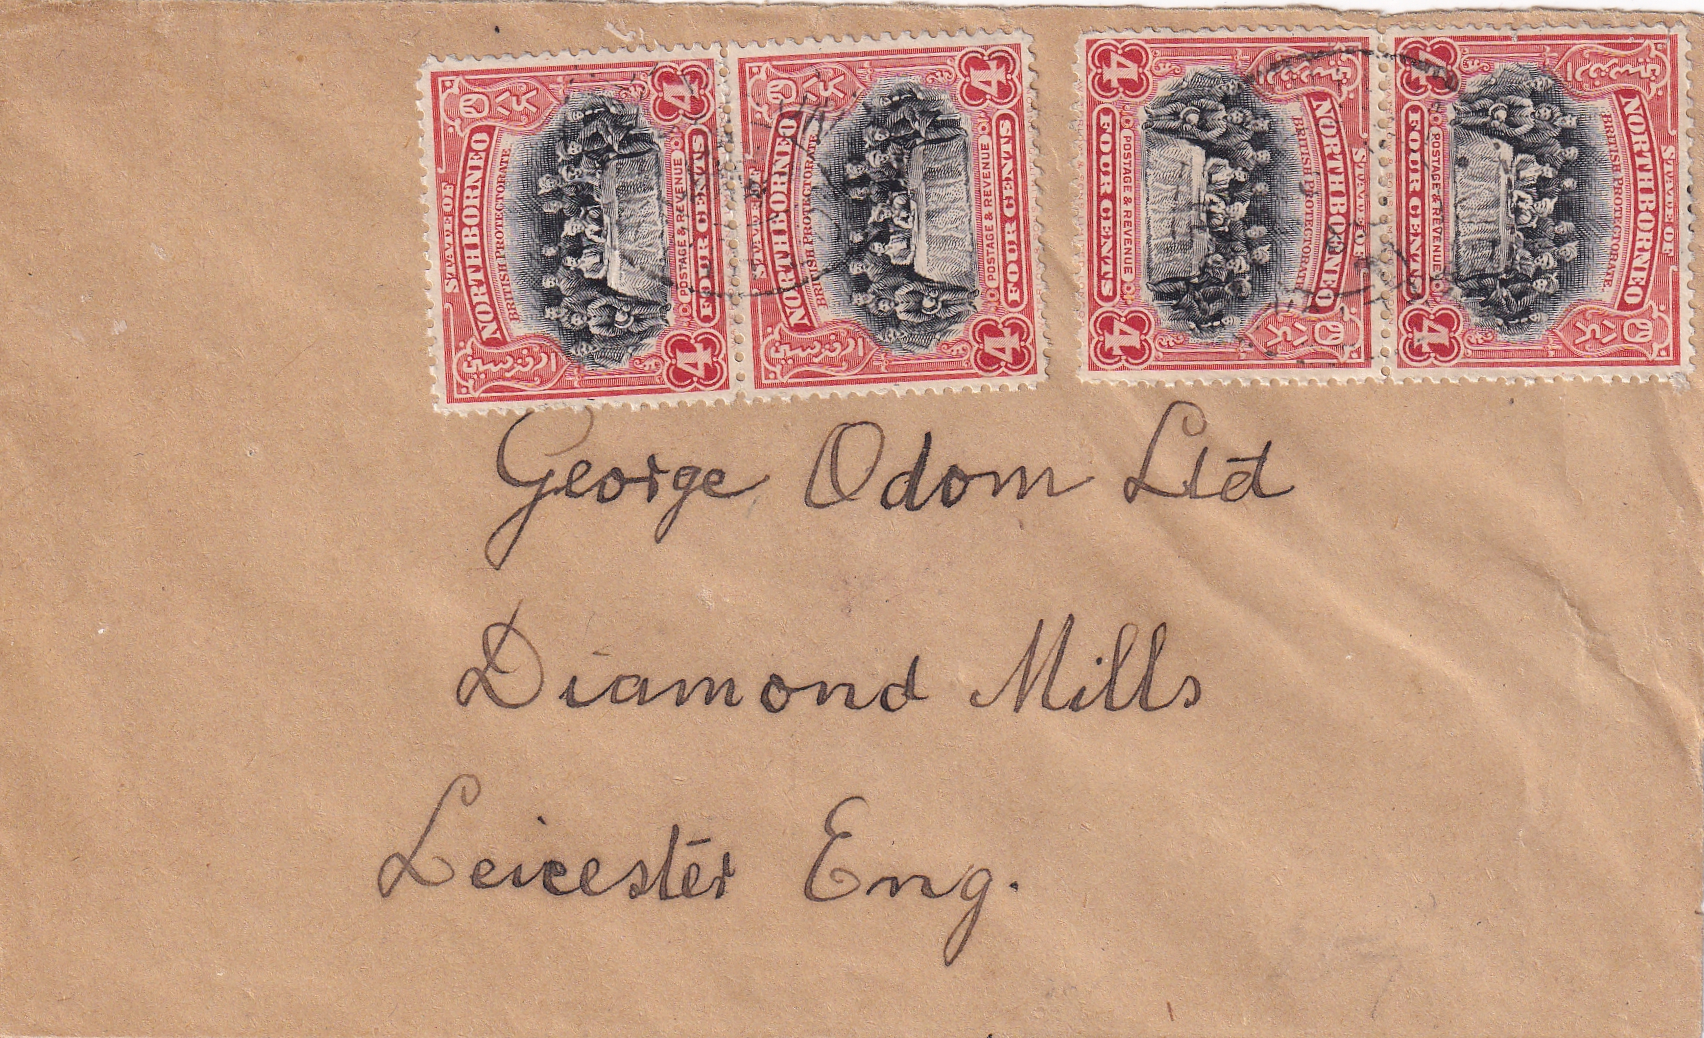 STATE OF
NORTH BORNEO
BRITISH PROTECTORATE
POSTAGE & REVENUE
FOUR CENTS
4
4
STATE OF
NORTH BORNEO
BRITISH PROTECTORATE
POSTAGE & REVENUE
FOUR CENTS
4
4
STATE OF
NORTH BORNEO
BRITISH PROTECTORATE
POSTAGE & REVENUE
FOUR CENTS
4
4
STATE OF
NORTH BORNEO
BRITISH PROTECTORATE
POSTAGE & REVENUE
FOUR CENTS
4
4
George Odom Ltd
Diamond Mills
Leicester Eng.